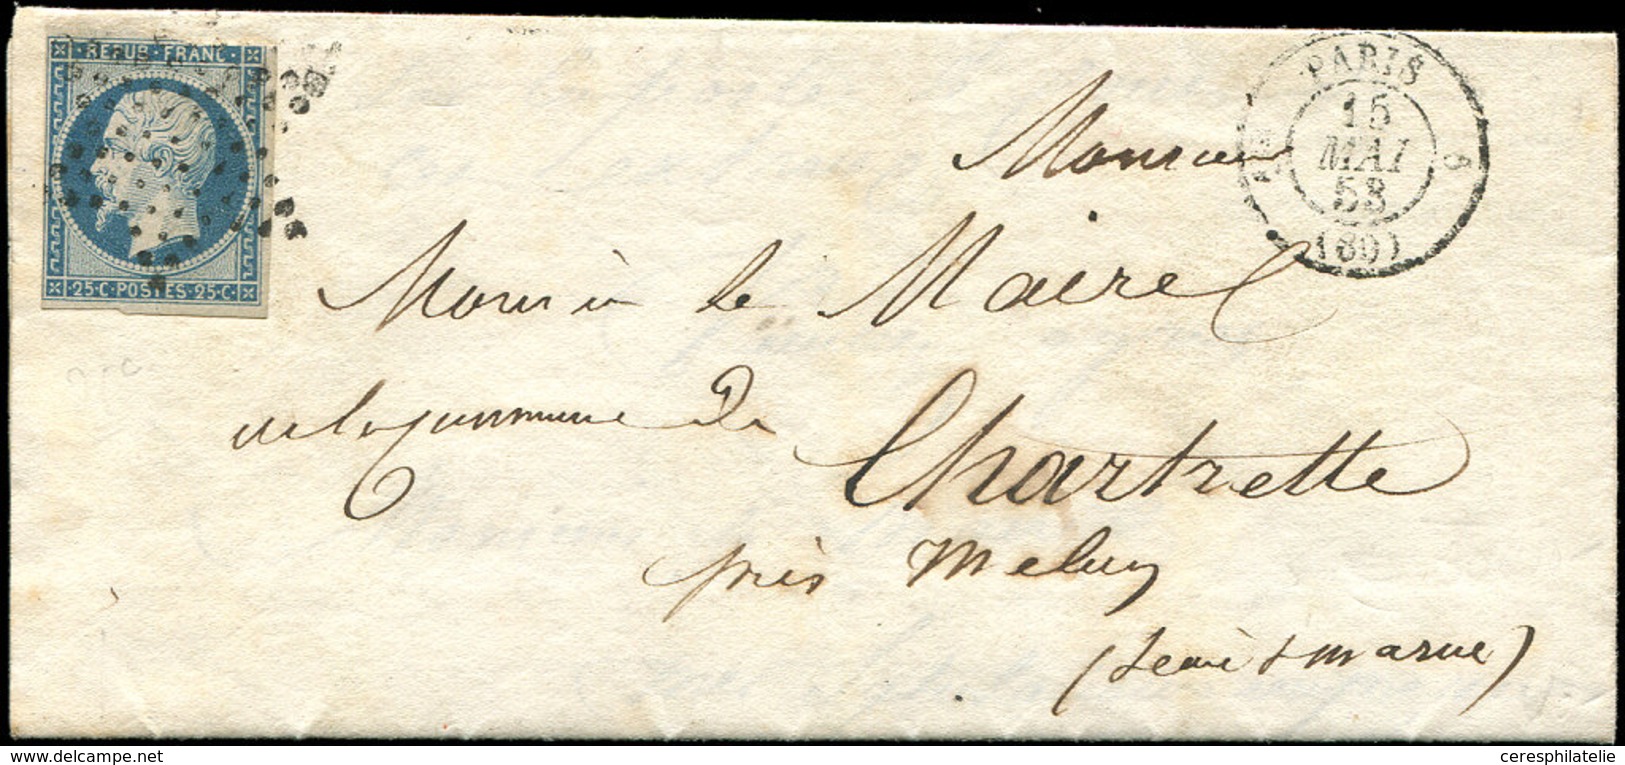 REPUB·FRANC·
25·C·POSTES·25·C·
PARIS
15
MAI
53
(60)
Monsieur
Monsieur le Maire
de la Commune De
Chartrette
près Melun
(Seine & marne)
delcampe.net
ceresphilatelie